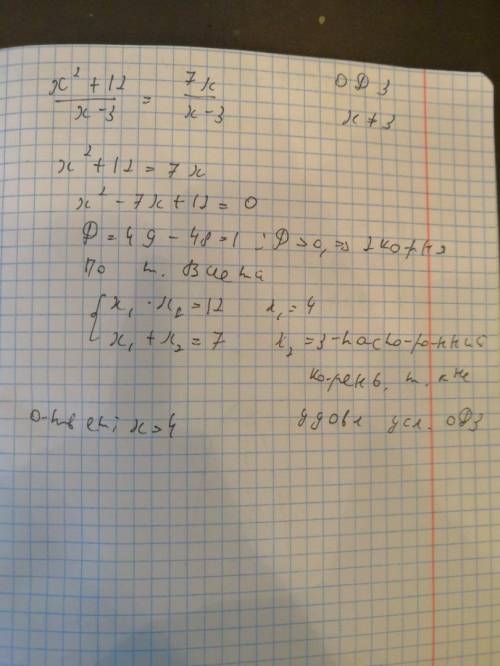 (x² + 12)/(x - 3) = 7x/(x - 3)    ОДЗ
x ≠ 3
x² + 12 = 7x
x² - 7x + 12 = 0
D = 49 - 48 = 1 ; D > 0, => 2 корня
По т. Виета
{ x₁ · x₂ = 12    x₁ = 4
x₁ + x₂ = 7    x₂ = 3 - посторонний
корень, т. к не
удовл усл. ОДЗ
Ответ: x = 4